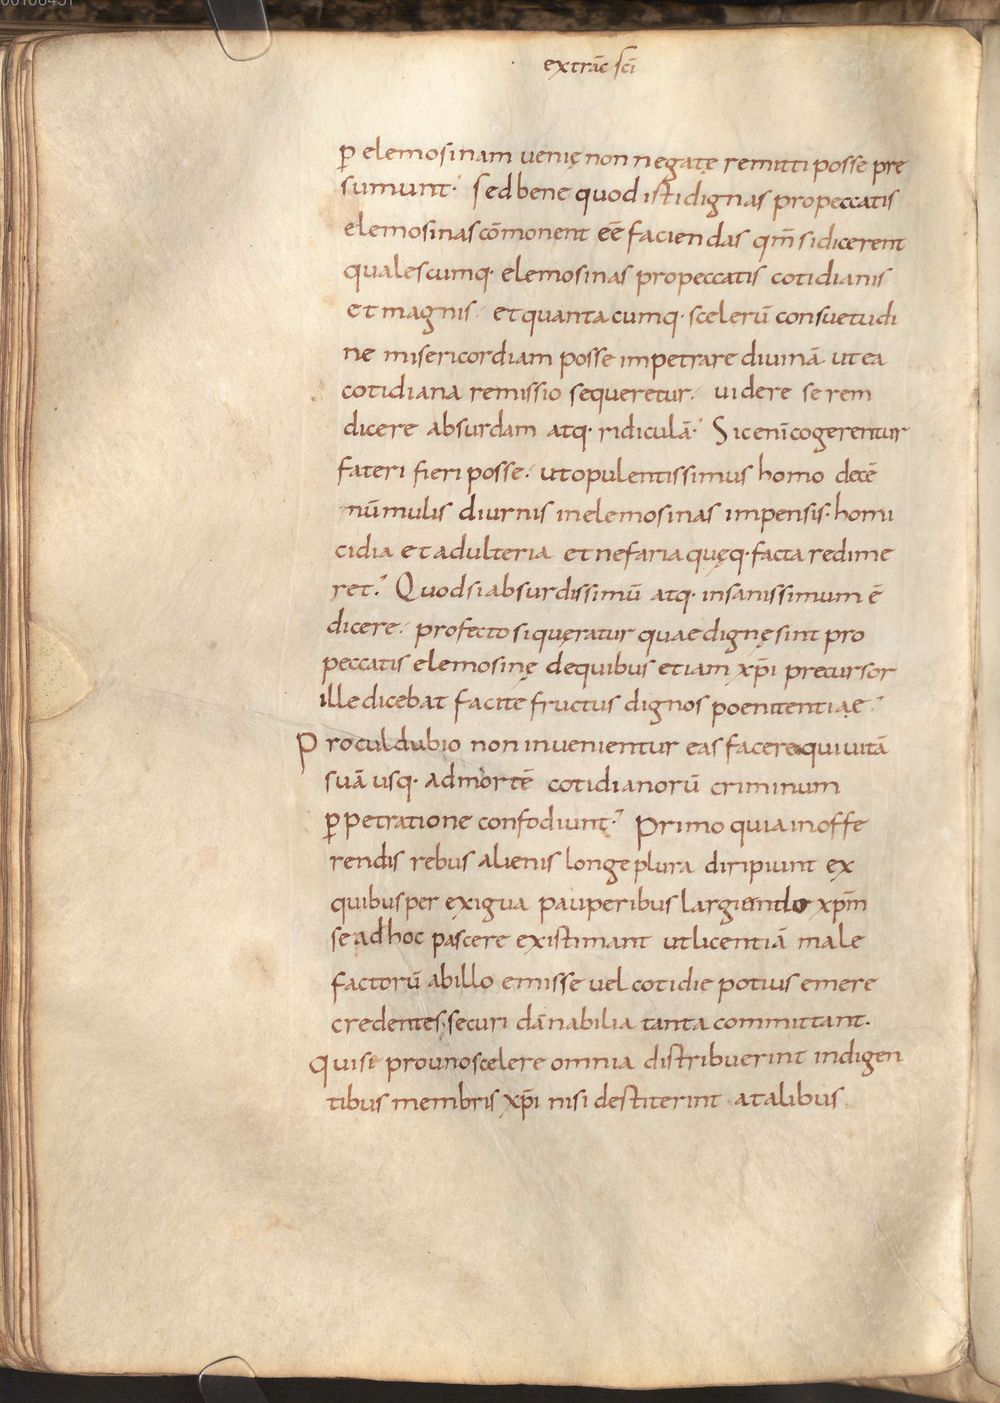 extrac̄ sc̄i
ꝑ elemosinam uenię non negatę remitti posse pre
sumunt. Sed bene quod isti dignas propeccatis
elemosinas cōmonent eē faciendas qm̄ si dicerent
qualescumq· elemosinas propeccatis cotidianis
et magnis. et quantacumq· scelerū consuetudi
ne misericordiam posse impetrare diuinā ut ea
cotidiana remissio sequeretur. uidere se rem
dicere absurdam atq· ridiculā. Sic enī cogerentur
fateri fieri posse. ut opulentissimus homo decē
nūmulis diurnis in elemosinas impensis. homi
cidia et adulteria et nefaria quęq· facta redime
ret. Quod si absurdissimū atq· insanissimum ē
dicere. profecto si quęratur quae dignę sint pro
peccatis elemosinę de quibus etiam xp̄i precursor
ille dicebat facite fructus dignos poenitentiae.
Procul dubio non inuenientur eas facere qui uitā
suā usq· ad mortē cotidianorū criminum
ꝑpetratione confodiunt. Primo quia in offe
rendis rebus alienis longe plura diripiunt ex
quibus per exigua pauperibus largiendo xp̄m
se ad hoc pascere existimant ut licentiā male
factorū ab illo emisse uel cotidie potius emere
credentes. securi dānabilia tanta committant.
Qui si pro uno scelere omnia distribuerint indigen
tibus membris xp̄i nisi destiterint a talibus